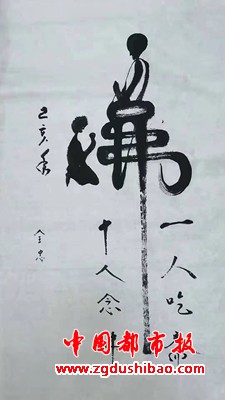 佛
一人吃
十人念
己亥年
全忠
中国都市报
www.zgdushibao.com